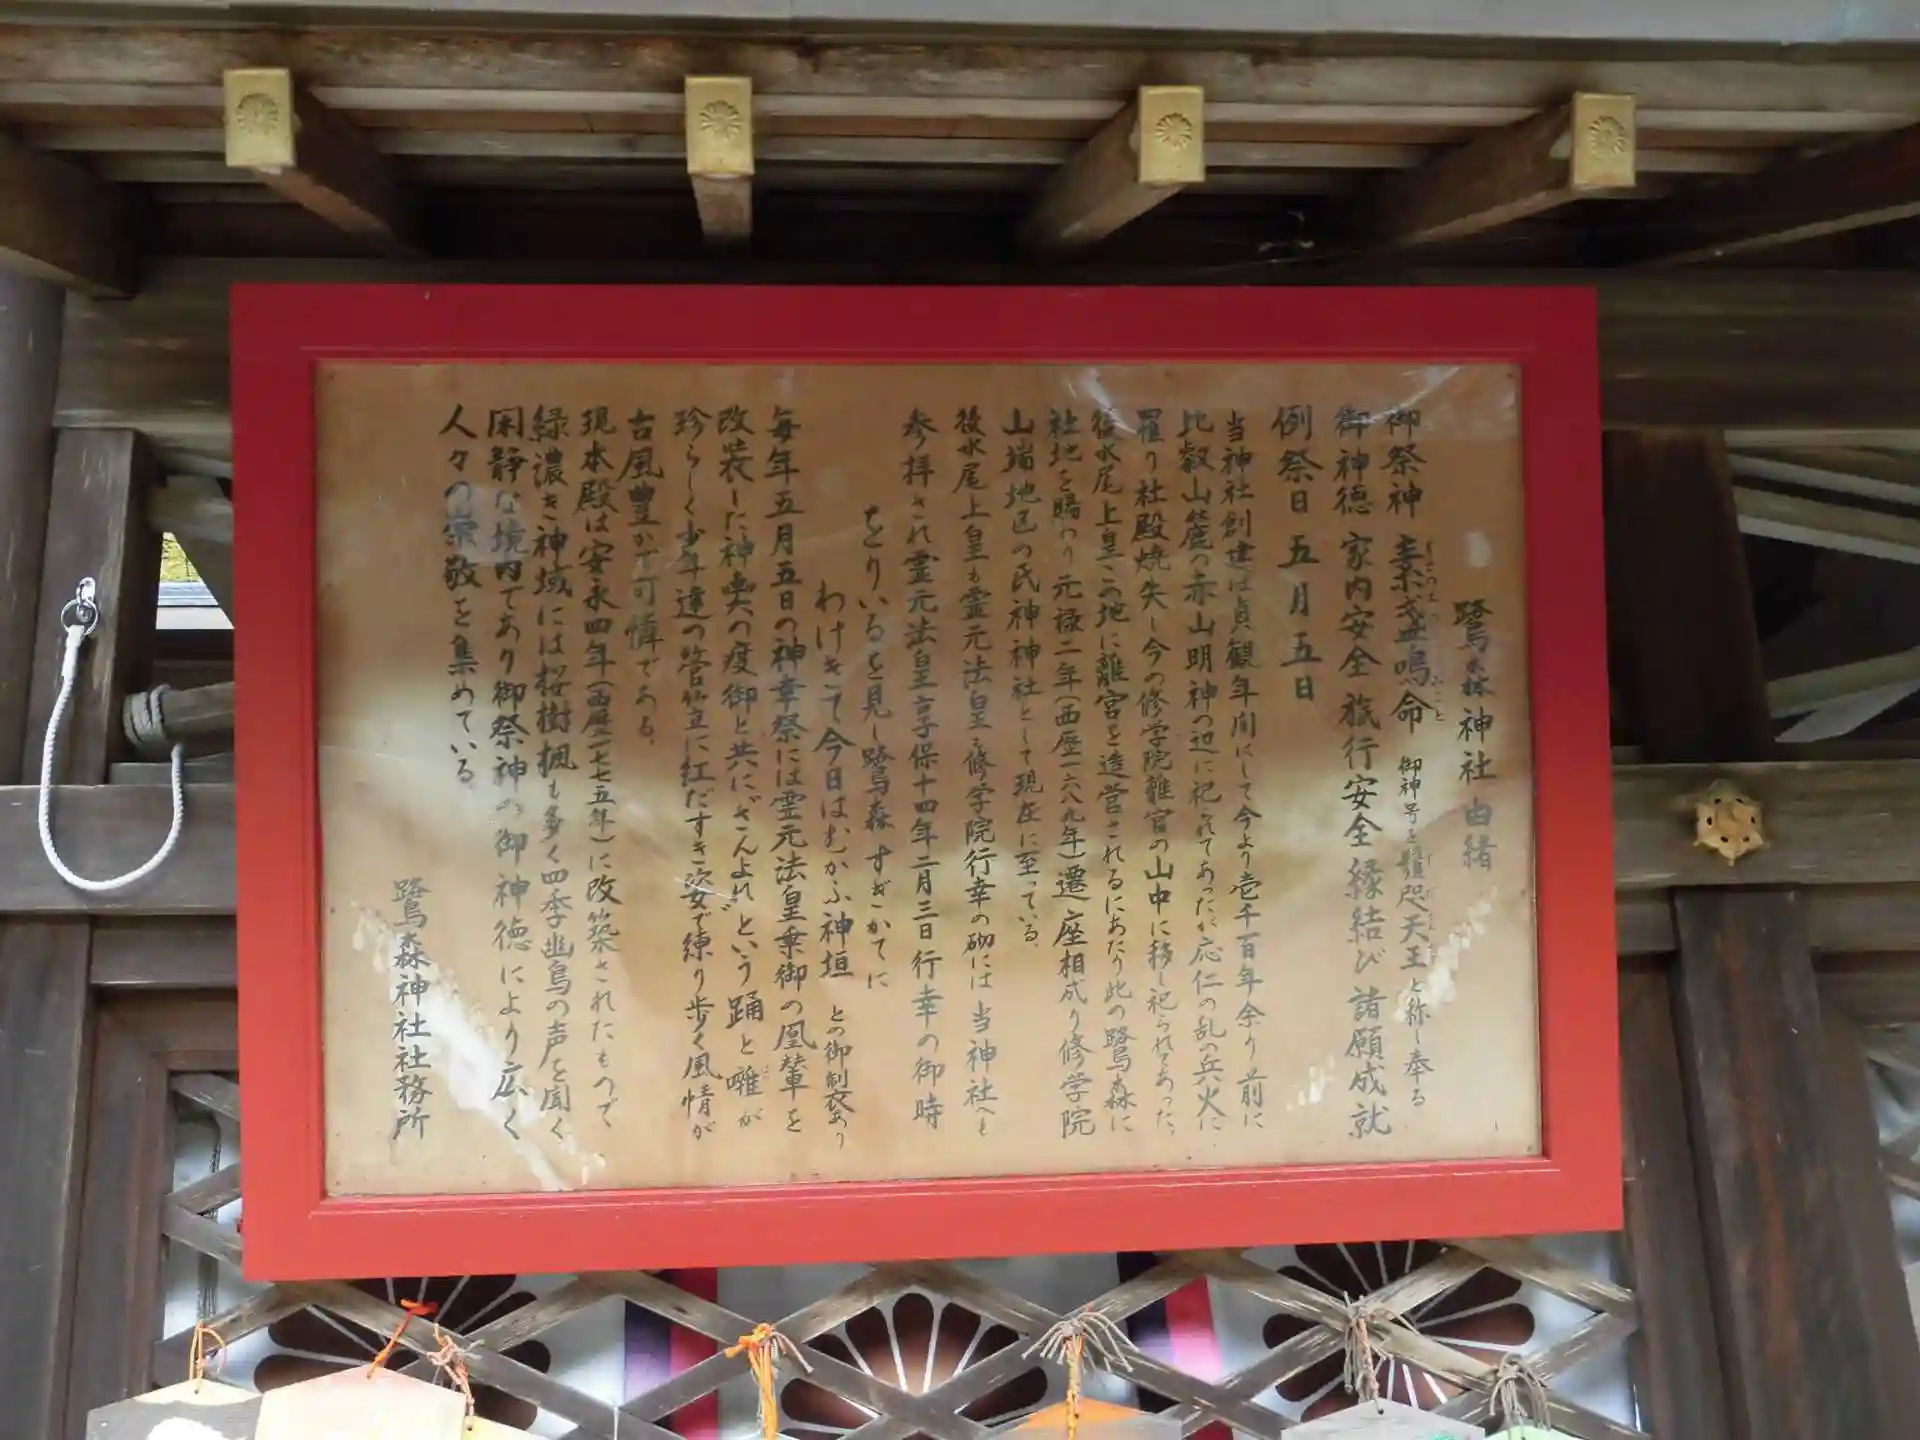 鷺森神社由緒
御祭神 素盞嗚命 御神号を鬚咫天王と称し奉る
すさのをの みこと
御神徳 家内安全 旅行安全 縁結び 諸願成就
例祭日 五月五日
当神社創建は貞観年間にして今より壱千百年余り前に
比叡山麓の赤山明神の辺に祀られてあったが応仁の乱の兵火に
罹り社殿焼失し今の修学院離宮の山中に移し祀られてあった、
後水尾上皇この地に離宮を造営されるにあたり此の鷺森に
社地を賜わり元禄二年(西歴一六八九年)遷座相成り修学院
山端地区の氏神神社として現在に至っている、
後水尾上皇も霊元法皇も修学院行幸の砌には当神社へも
参拝され霊元法皇享保十四年二月三日行幸の御時
をりいるを見し鷺森すぎがてに
わけきて今日はむかふ神垣 との御製衣あり
毎年五月五日の神幸祭には霊元法皇乗御の鳳輦を
改装した神輿の渡御と共にさんよれという踊と囃が
珍らしく少年達の菅笠に紅だすき姿で練り歩く風情が
古風豊かで可憐である、
現本殿は安永四年(西歴一七七五年)に改築されたもので
緑濃き神域には桜樹楓も多く四季幽鳥の声を聞く
閑静な境内であり御祭神の御神徳により広く
人々の崇敬を集めている、
鷺森神社社務所